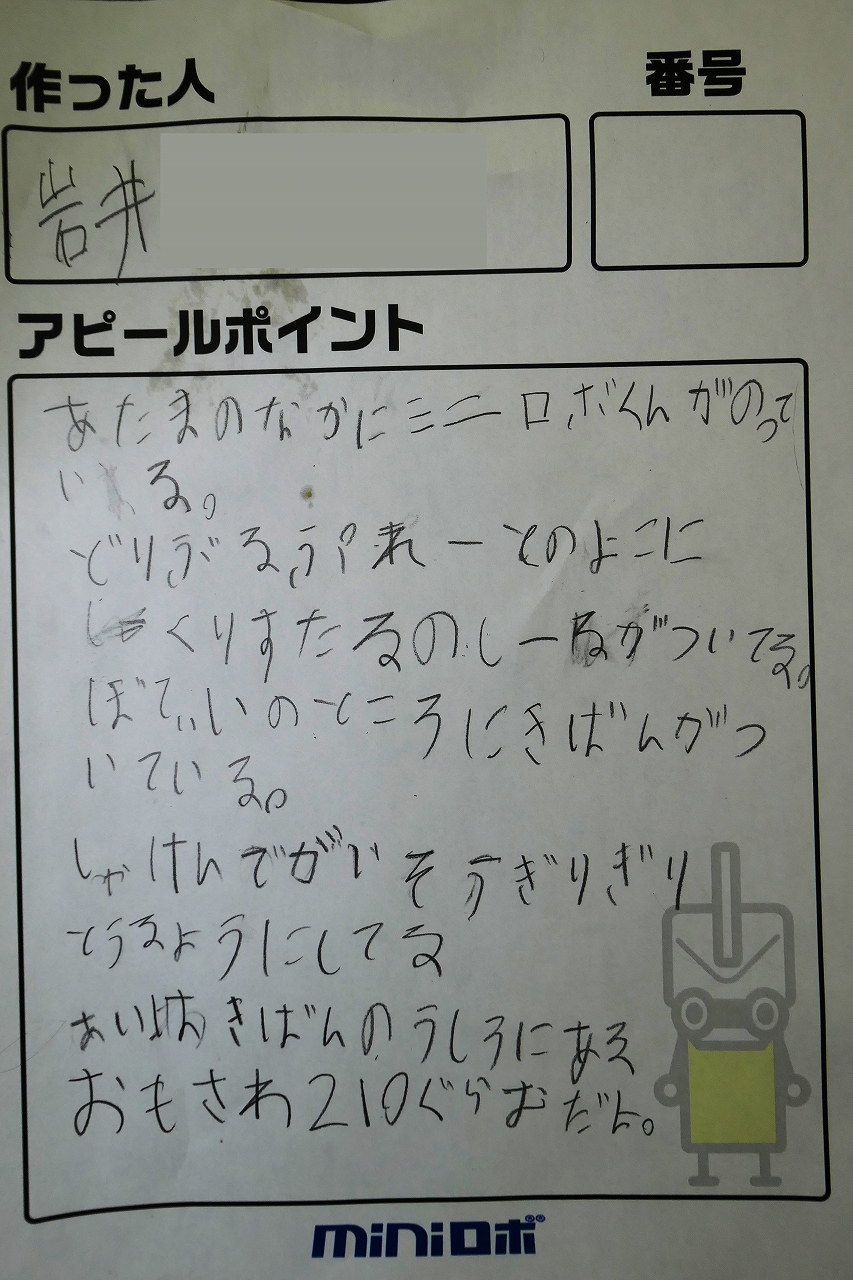 作った人
番号
岩井
アピールポイント
あたまのなかにミニーロボくんがのって
いる。
どりぶるぷれーとのよこに
くりすたるのしーるがついてる。
ぼでぃいのところにきばんがつ
いている。
しゃけんでがいそうぎりぎり
とうるようにしてる
きばんのうしろにある
おもさわ210ぐらむだよ。
miniロボ